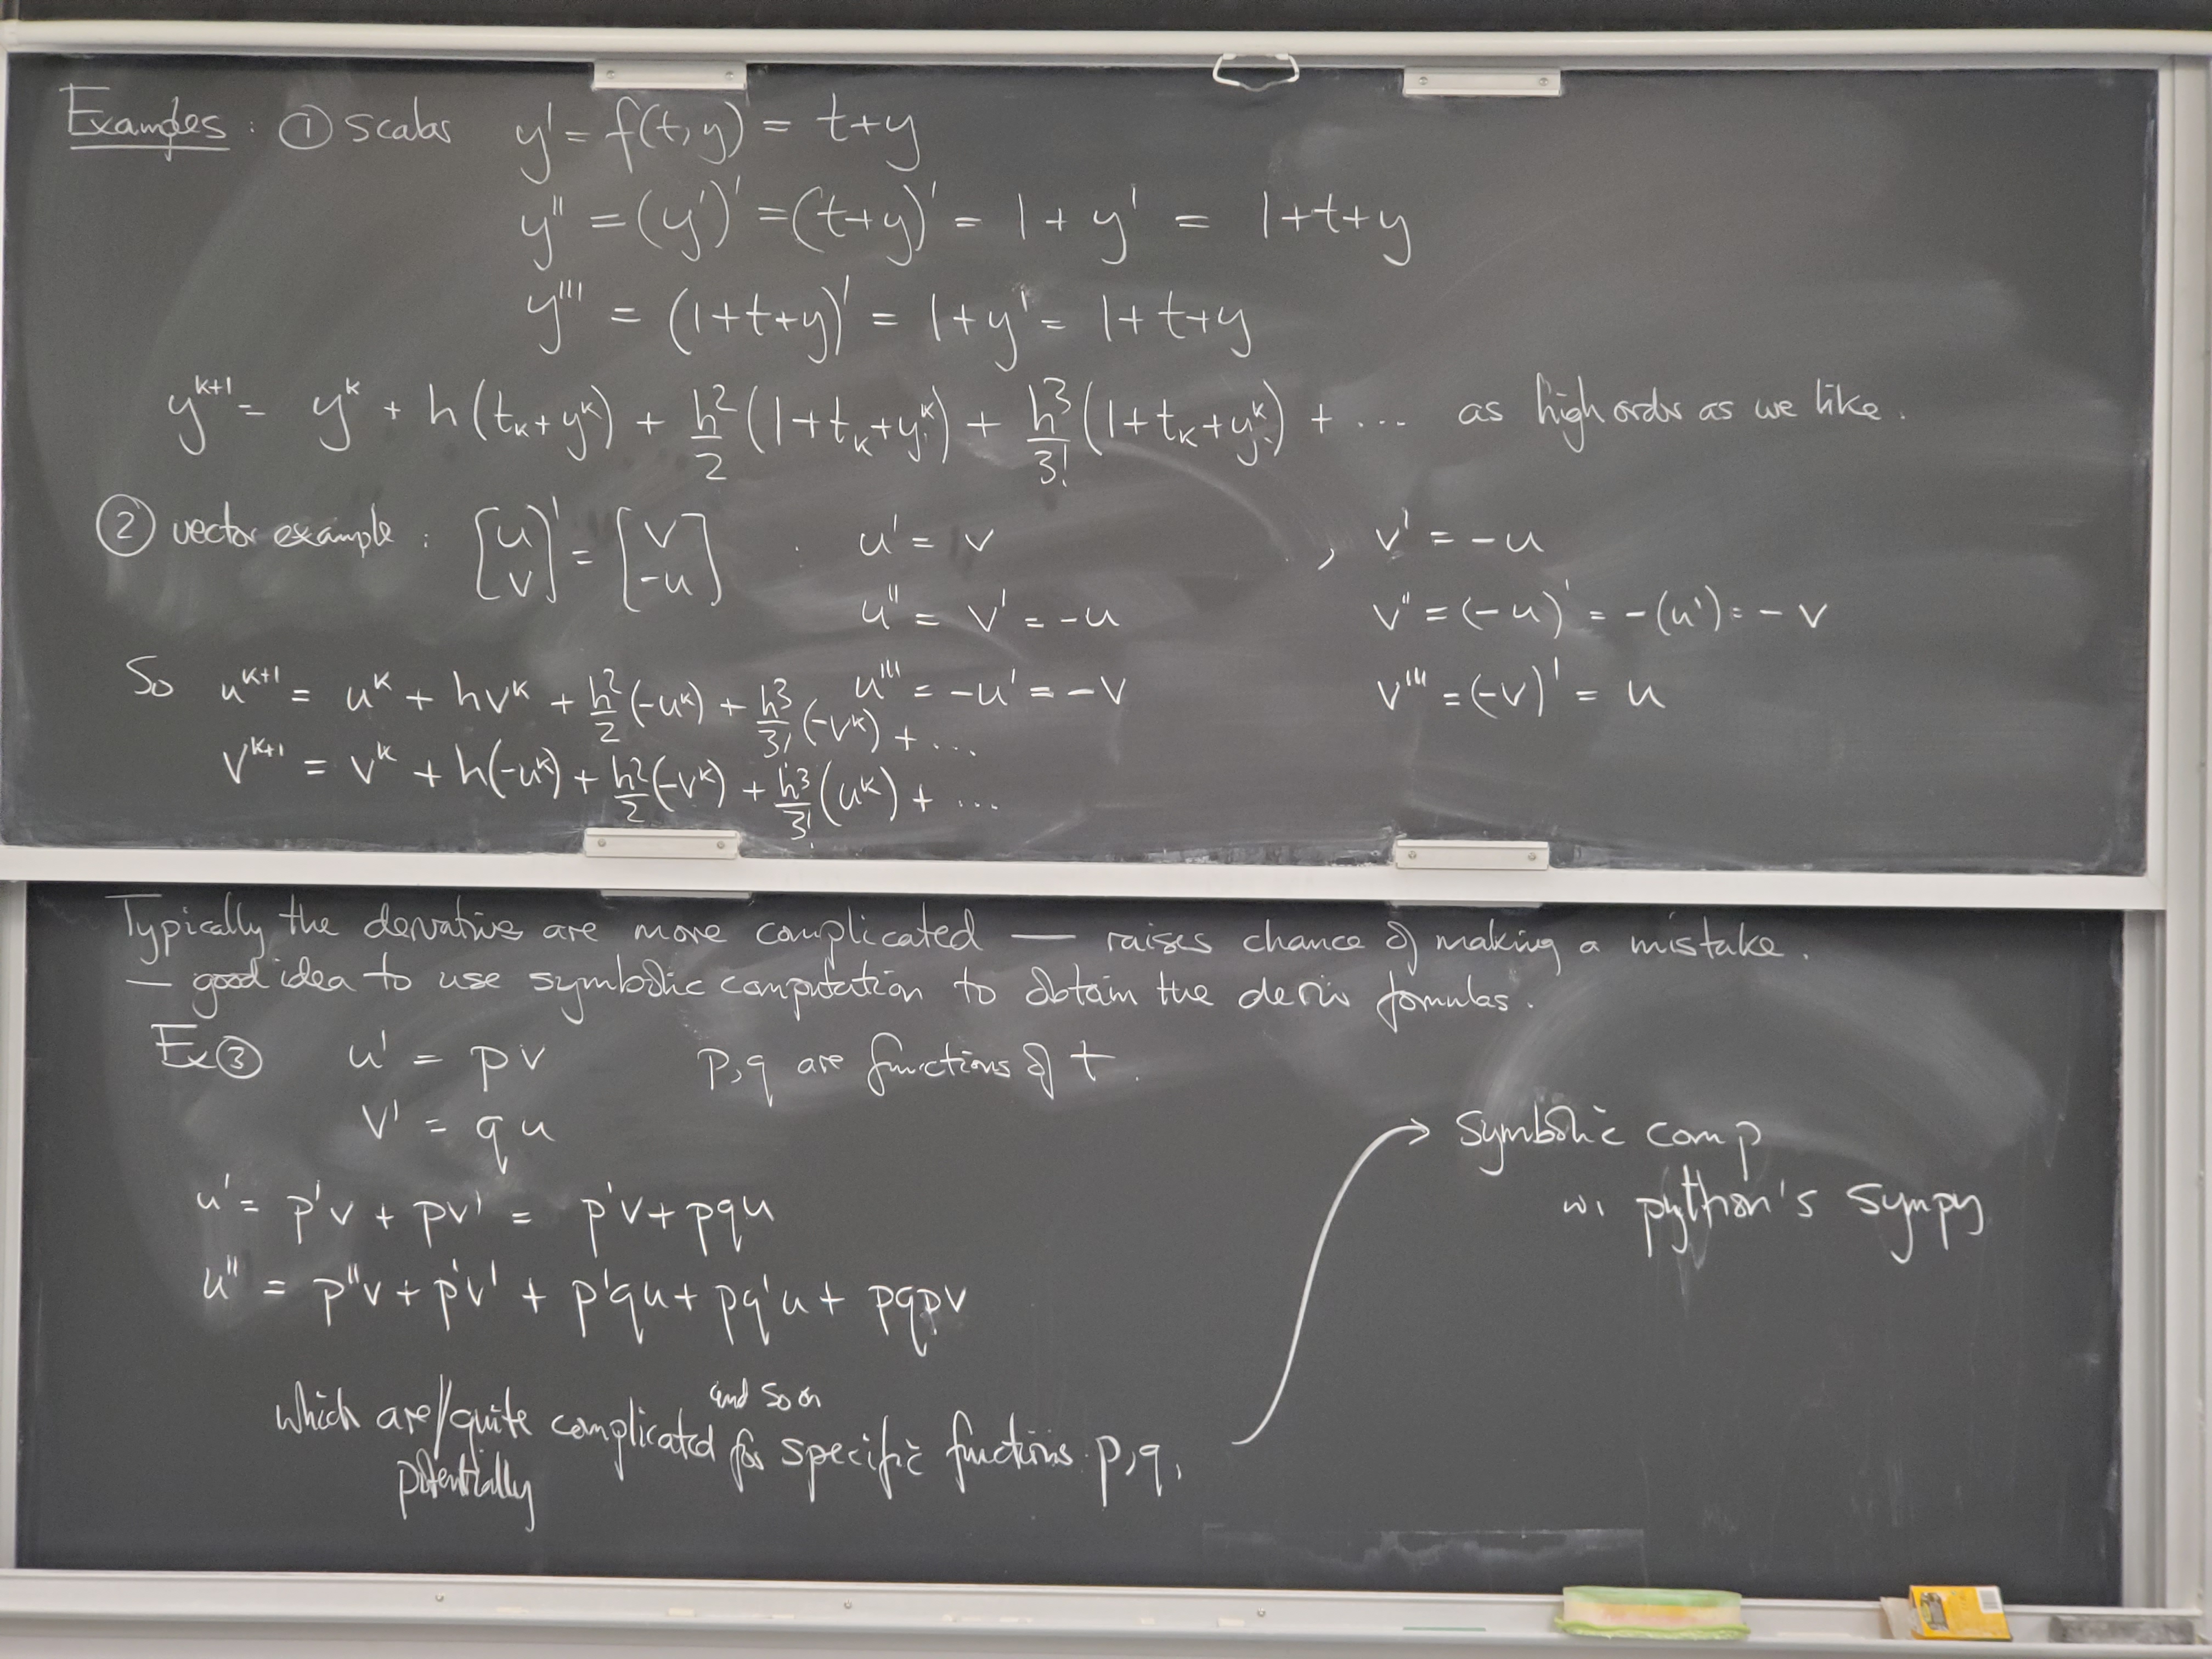 Examples : ① scalar y' = f(t,y) = t+y
y'' = (y')' = (t+y)' = 1 + y' = 1+t+y
y''' = (1+t+y)' = 1+y' = 1+t+y
y^{k+1} = y^k + h(t_k+y^k) + h²/2 (1+t_k+y^k) + h³/3! (1+t_k+y^k) + ... as high order as we like.
② vector example : [u v]' = [v -u] . u' = v , v' = -u
u'' = v' = -u v'' = (-u)' = -(u') = -v
u''' = -u' = -v v''' = (-v)' = u
So u^{k+1} = u^k + hv^k + h²/2 (-u^k) + h³/3! (-v^k) + ...
v^{k+1} = v^k + h(-u^k) + h²/2 (-v^k) + h³/3! (u^k) + ...
Typically the derivatives are more complicated — raises chance of making a mistake.
— good idea to use symbolic computation to obtain the deriv formulas.
Ex③ u' = pv p,q are functions of t.
v' = qu
u' = p'v + pv' = p'v + pqu
u'' = p''v + p'v' + p'qu + pq'u + pqpv
and so on
which are/quite complicated for specific functions p,q,
potentially
→ symbolic comp
w, python's sympy